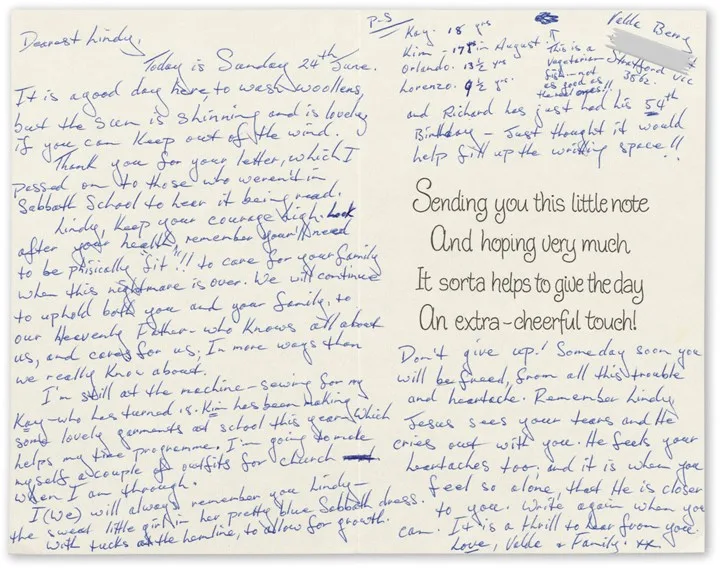 Dearest Lindy,
Today is Sunday 24th June.
It is a good day here to wash woollens,
but the sun is shinning and is lovely
if you can keep out of the wind.
Thank you for your letter, which I
passed on to those who weren't in
Sabbath School to hear it being read.
Lindy, keep your courage high. Look
after your health, remember your'll need
to be phisically "fit"!! to care for your family
when this nightmare is over. We will continue
to uphold both you and your family, to
our Heavenly Father - who knows all about
us, and cares for us, In more ways than
we really know about.
I'm still at the machine - sewing for my
Kay - who has turned 18. Kim has been making
some lovely garments at school this year which
helps my time programme. I'm going to make
myself a couple of outfits for church
when I am through.
I (We) will always remember you Lindy -
the sweet little girl in her pretty blue Sabbath dress.
with tucks at the hemline, to allow for growth.
P-S
Kay. 18 yrs
Kim - 17 yrs in August.
Orlando. 13½ yrs
Lorenzo. 9½ yrs.
↑
This is a
vegetarian
fish - not
as good as
the real ones!!
Velde Berry
Strafford Vic
3862.
and Richard has just had his 54th
Birthday - Just thought it would
help fill up the writing space!!
Sending you this little note
And hoping very much
It sorta helps to give the day
An extra-cheerful touch!
Don't give up! Someday soon you
will be freed, from all this trouble
and heartache. Remember Lindy
Jesus sees your tears and He
cries out with you. He feels your
heartaches too, and it is when you
feel so alone, that He is closer
to you. Write again when you
can. It is a thrill to hear from you.
Love, Velde & Family. xx